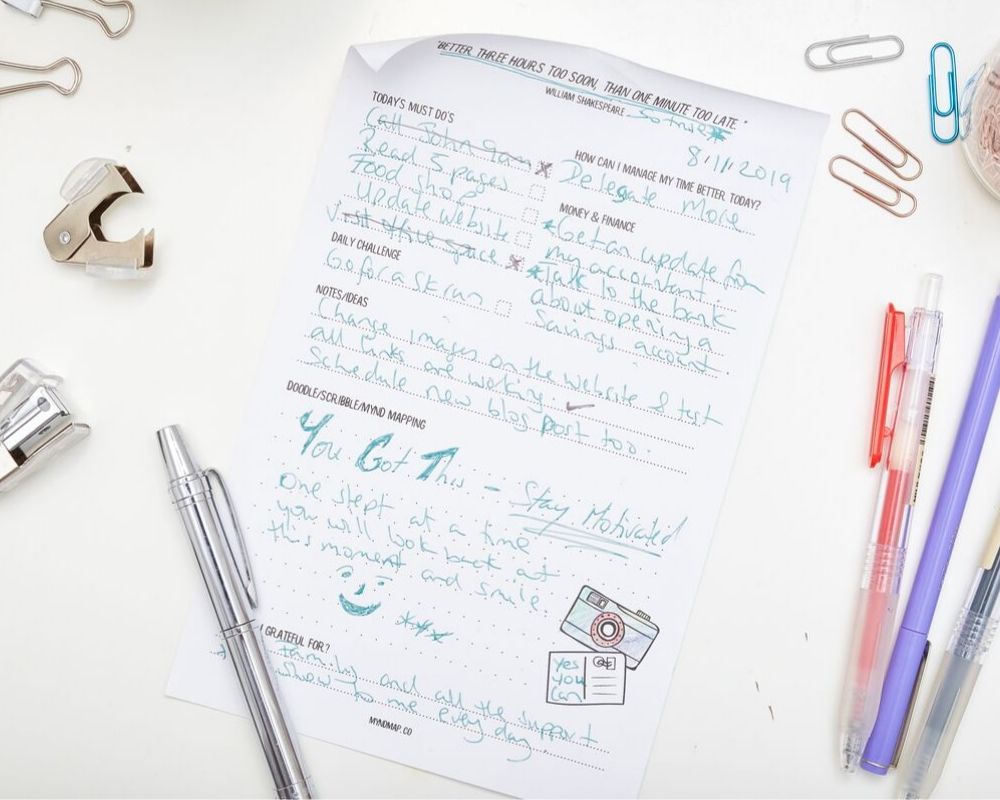 "BETTER THREE HOURS TOO SOON, THAN ONE MINUTE TOO LATE."
WILLIAM SHAKESPEARE
So true
8/11/2019
TODAY'S MUST DO'S
Call John
Read 5 pages
Food shop
Update website
Visit office space
DAILY CHALLENGE
Go for a 5k run
HOW CAN I MANAGE MY TIME BETTER TODAY?
Delegate More
MONEY & FINANCE
*Get an update from
my accountant.
*Talk to the bank
about opening a
Savings account
NOTES/IDEAS
Change images on the website & test
all links are working. ✓
Schedule new blog post too.
DOODLE/SCRIBBLE/MYND MAPPING
You Got This - Stay Motivated
One stept at a time
you will look back at
this moment and smile
***
Yes
you
Can
GRATEFUL FOR?
family and all the support
show to me every day.
MYNDMAP.CO